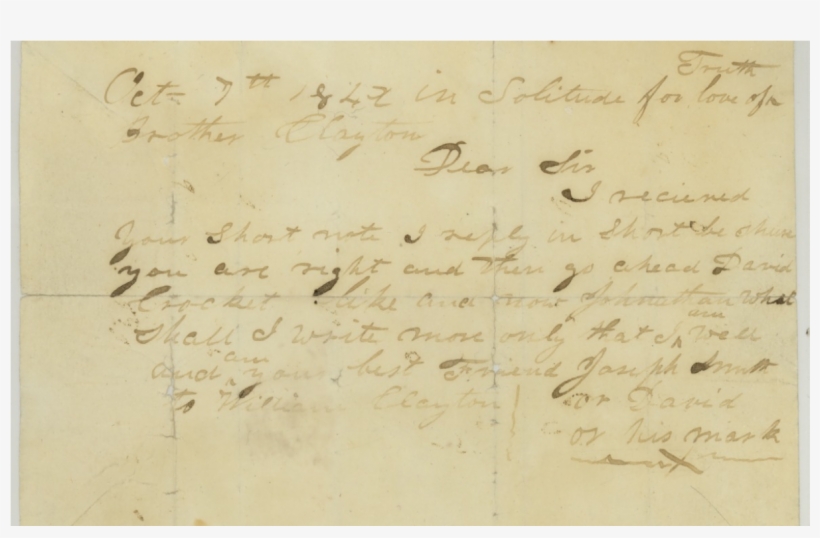 Truth
Oct 7th 1842 in Solitude for love of
Brother Clayton
Dear Sir
I recieved
your Short note I reply in Short be shure
you are right and then go ahead David
Crocket like and now Johnathan what
shall I write more only that I am well
and am your best Friend Joseph Smith
to William Clayton or David
or his mark